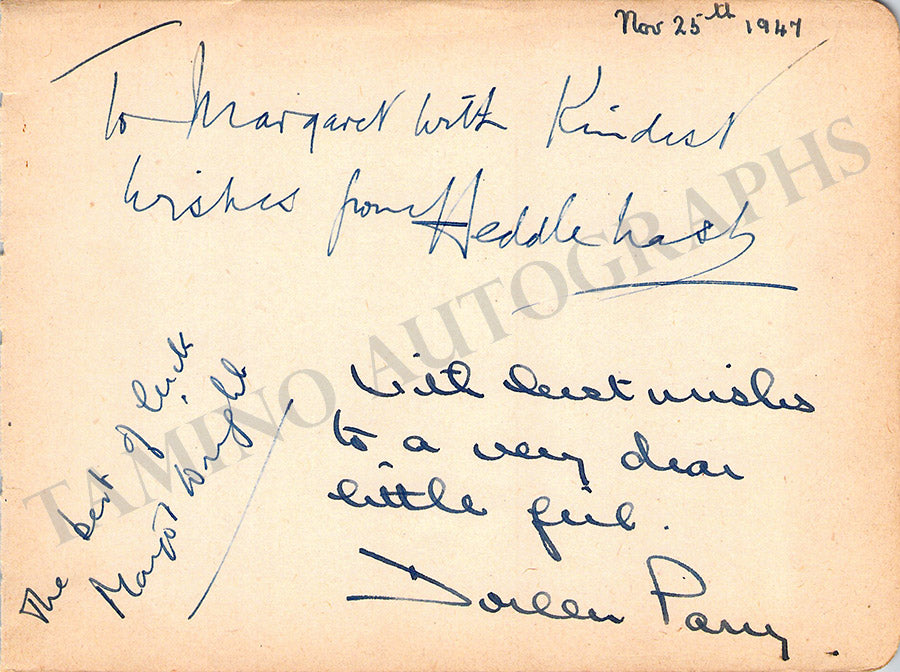 Nov 25th 1947
To Margaret with Kindest
wishes from Heddle Nash
With best wishes
to a very dear
little girl.
Doreen Parry.
The best of luck
Margot Wright
TAMINO AUTOGRAPHS